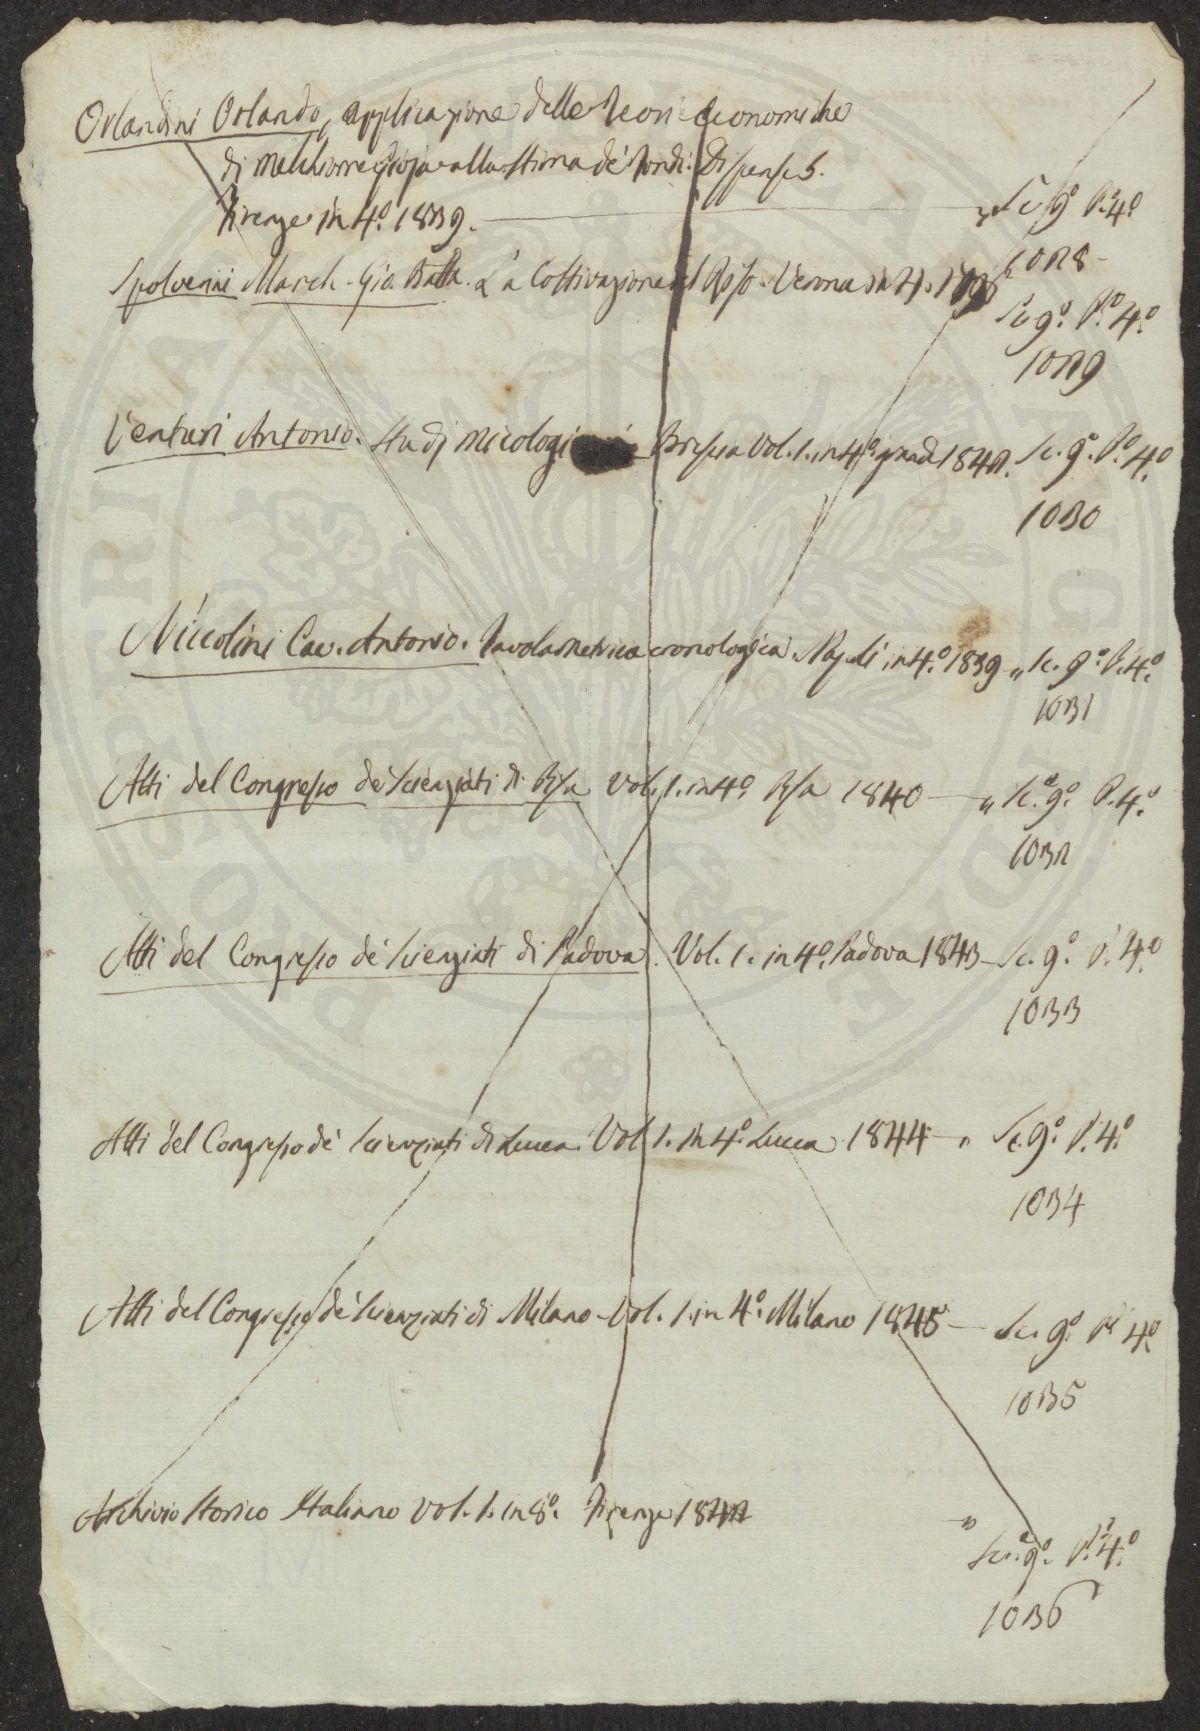 Orlandini Orlando, applicazione delle Teorie Economiche
di Melchiorre Gioja alla stima de' fondi. Dispense 5.
Firenze in 4.º 1839. „ Sc. 9º P. 4º
1028
Spolverini March. Gio. Batta. La Coltivazione del Riso. Verona in 4.
Sc. 9º. P.º 4.º
1029
Venturi Antonio. Studj Micologi Brescia Vol. 1. in 4.º grande 1842. Sc. 9.º P.º 4.º
1030
Niccolini Cav. Antonio. Tavola Metrica cronologica. Napoli in 4.º 1839 „ Sc. 9.º P. 4.º
1031
Atti del Congresso de' Scienziati di Pisa Vol. 1. in 4º. Pisa 1840 — „ Sc. 9º. P. 4.º
1032
Atti del Congresso de' Scienziati di Padova. Vol. 1. in 4º. Padova 1843 — Sc. 9.º P. 4.º
1033
Atti del Congresso de' Scienziati di Lucca. Vol. 1. in 4.º Lucca 1844 — „ Sc. 9.º P. 4.º
1034
Atti del Congresso de' Scienziati di Milano — Vol. 1. in 4.º Milano 1845 — Sc. 9.º P. 4.º
1035
Archivio Storico Italiano Vol. 1. in 8º. Firenze 1842 „
Sc. 9º. P. 4.º
1036